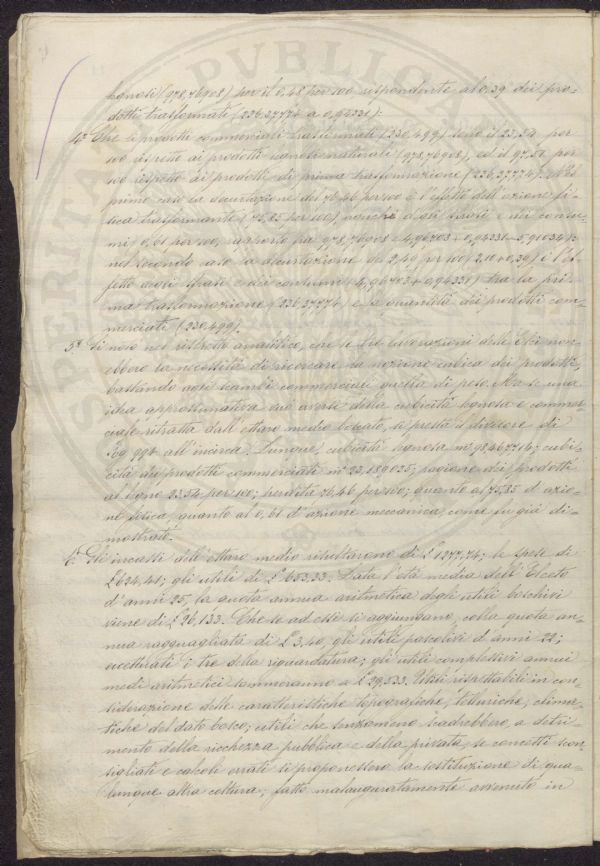 legnosi (978,76908) per il 0,48 per 100 rispondente al 0,39 dei pro-
dotti trasformati (236,37774 a 0,94331):
4.° Che i prodotti commerciari trasformati (230,499) sono il 23,54 per
100 rispetto ai prodotti legnosi naturali (978,76908), ed il 97,51 per
100 rispetto ai prodotti di prima trasformazione (236,37774). Nel
primo caso la decurtazione del 76,46 per 100 è l'effetto dell'azione fi-
sica trasformante (75,85 per 100), nonchè degli sfrisi e dei consu-
mi (0,61 per 100, rapporto fra 978,76908 e 4,96703 + 0,94331 = 5,91034):
nel secondo caso la decurtazione di 2,49 per 100 (2,10 + 0,39) è l'ef-
fetto degli sfrisi e dei consumi (4,96703 + 0,94331) tra la pri-
ma trasformazione (236,37774) e la quantità dei prodotti com-
merciati (230,499).
5.° Si notò nel ristretto analitico, che le tre lavorazioni delle Elci non
ebbero la necessità di ricercare la nozione cubica dei prodotti,
bastando agli scambi commerciali quella di peso. Ma se una
idea approssimativa sia aversi della cubicità legnosa e commer-
ciale ritratta dall'ettaro medio boscato, si presta il divisore di
Kg 994 all'incirca. Dunque, cubicità legnosa m³ 98,467714; cubi-
cità dei prodotti commerciati m³ 23,189035; ragione dei prodotti
al legno 23.54 per 100; perdita 76,46 per 100; quanto al 75,85 d'azio-
ne fisica, quanto al 0,61 d'azione meccanica, come fu già di-
mostrato.
6.° Gli incassi dell'ettaro medio risultarono di £ 1277,74; le spese di
£ 624,41; gli utili di £ 653,33. Data l'età media dell'Elceto
d'anni 25, la quota annua aritmetica degli utili boschivi
viene di £ 26,133. Che se ad essi si aggiungano, colla quota an-
nua ragguagliata di £ 3,40, gli utili pascolivi d'anni 22,
eccettuati i tre della riguardatura; gli utili complessivi annui
medi aritmetici sommeranno a £ 29,533. Utili rispettabili in con-
siderazione delle caratteristiche topografiche, telluriche, clima-
tiche del dato bosco; utili che scadrebbero, a detri-
mento della ricchezza pubblica e della privata, se concetti scon-
sigliati e calcoli errati si proponessero la sostituzione di qua-
lunque altra coltura; fatto malauguratamente avvenuto in